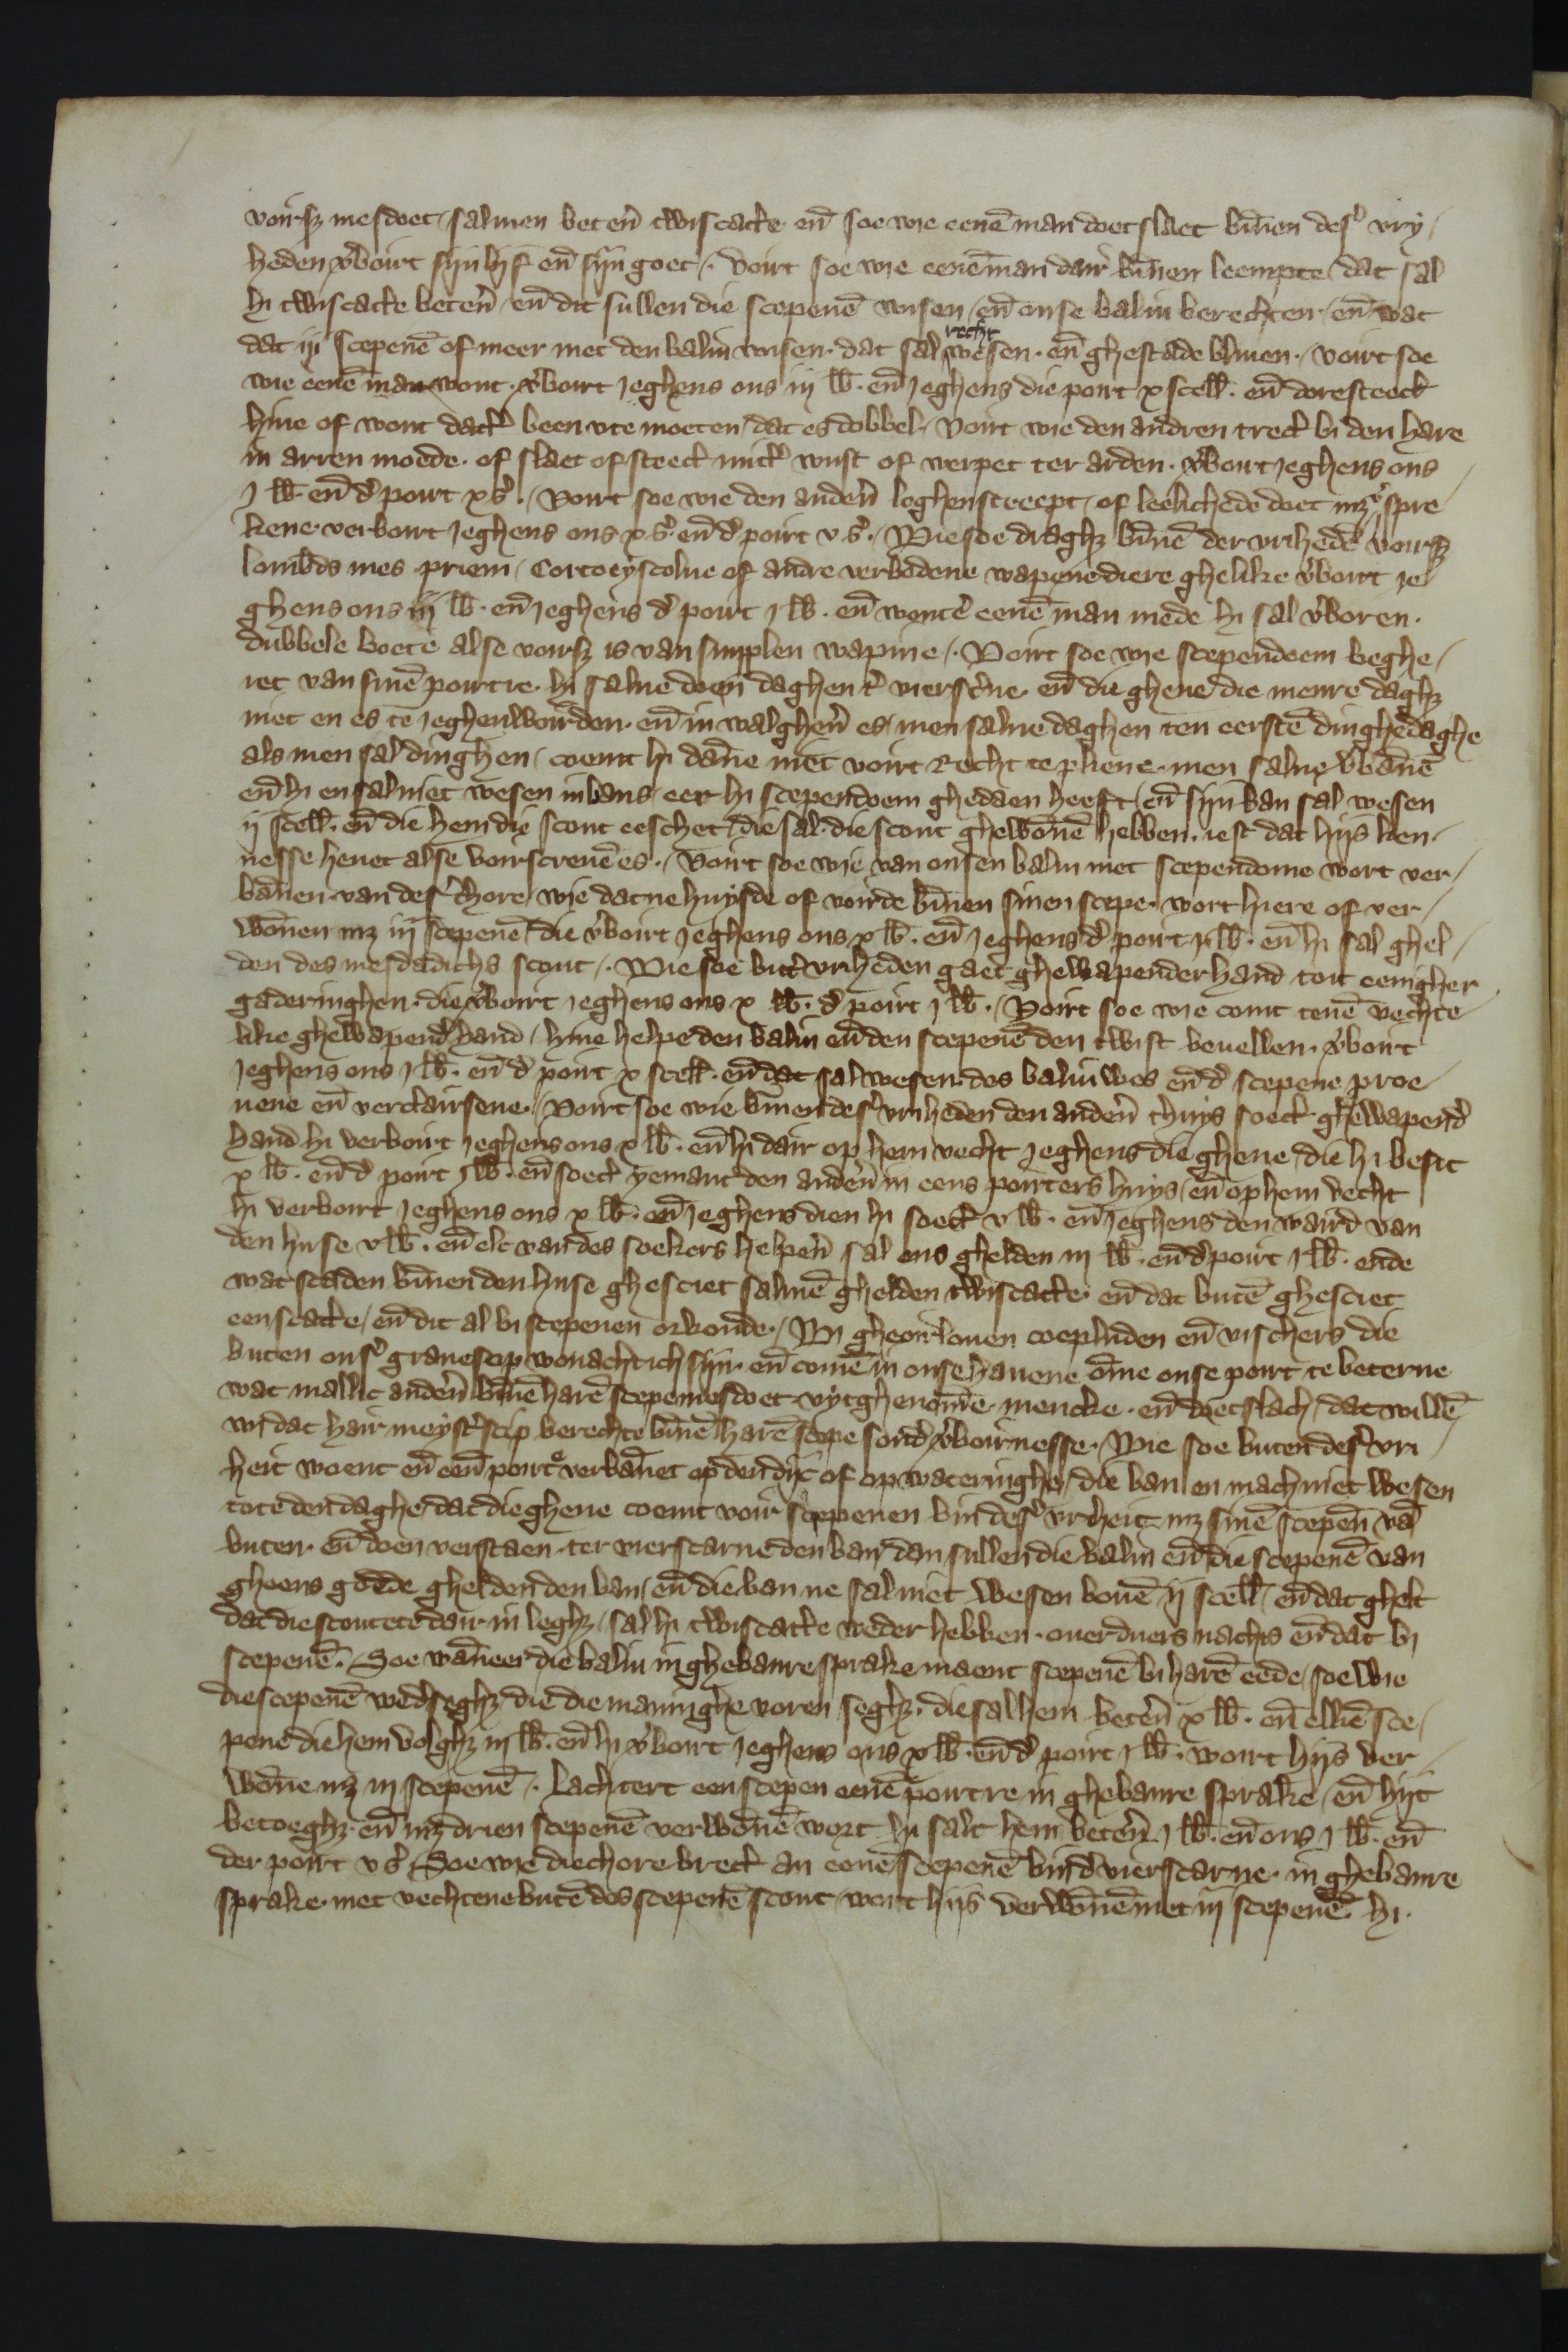 voirsz mesdoet / salmen beteñ twiscatte eñ soe wie eenē man doet slaet bīnen desˀ vrÿ /
heden v̓boirt sijn lijf eñ sijn goet /. Voirt soe wie eenē man dair bīnen leempte / dat sal
hi twiscatte beteñ / eñ dit sullen die scepenē wisen / eñ onse baliu berechten / eñ wat
dat iij scepenē of meer met den baliu wisen . dat sal recht wesen . eñ ghestade bliuen . / voirt soe
wie eenē man wont . v̓boirt jeghens ons iij lb̄ . eñ jeghens die poirt x scell̄ . eñ doresteect
hine of wont datt̓ been vte moeten / dat es dobbel / Voirt wie den andren trect bi den hare
in arren moede . of slaet of steect mitt̓ vust of werpet ter arden . v̓boirt jeghens ons
j lb̄ . eñ d̓ poirt x s̓ . / Voirt soe wie den andeñ loghenstreept / of leelichede doet mz̓ spre
kene . verboirt jeghens ons x s̓ . eñ d̓ poirt v s̓ . / Wie soe draghz bīnē der vrihedē voirsz
lomb̄ds mes priem / Cortoeyscolue of andre verbodene wapene diere ghelike v̓boirt je
ghens ons iij lb̄ . eñ jeghens d̓ poirt j lb̄ . eñ wont̓e eenē man mede hi sal v̓boren .
dubbele boete alse voirsz is van simplen wapine / . Voirt soe wie scependoem beghe /
ret van sinē poirtre . hi salne doen daghen t̓ vierscˀne . eñ die ghene die menre daghz
niet en es te jeghenwoirden . eñ in walgheñ es / men salne daghen ten eerstē dinghedaghe
als men sal dinghen / coemt hi dāne niet voirt Recht te pliene . men salne v̓bānē
eñ hi en sal niet wesen in bans / eer hi scependoem ghedaen heeft / eñ sijn ban sal wesen
ij scell̄ . eñ die hem die scout eeschet / die sal . die scout ghewōnē hebben . iest dat hijs ken /
nesse heuet alse voirscreuē es . / Voirt soe wie van onsen baliu met scependome wort ver /
bānen . van desˀ Chore / wie datne huÿsde of voirde bīnen sinen scepe . wort hiere of ver /
wōnen mz iij scepenē / die v̓boirt jeghens ons x lb̄ . eñ jeghens d̓ poirt j lb̄ . eñ hi sal ghel /
den des mesdadichs scout / . Wie soe butē vriheden gaet ghewapender hand tot eenigher
gaderinghen . die v̓boirt jeghens ons x lb̄ . d̓ poirt j lb̄ . / Voirt soe wie comt tenē vechte
like ghewapend̓ hand / hine helpe den baliu eñ den scepenē den twist beuellen . v̓boirt
jeghens ons j lb̄ . eñ d̓ poirt x scell̄ . eñ dat sal wesen . des baliuwes eñ d̓ scepene proe
uene eñ verclairsene . / Voirt soe wie bīnen desˀ vriheden den andeñ thuÿs soect ghewapend̓
hand hi verboirt jeghens ons x lb̄ . eñ hi dair op hem vecht jeghens die ghene / die hi besit
x lb̄ . eñ d̓ poirt j lb̄ . eñ soect yemant den andeñ in eens poirters huÿs / eñ op hem vecht
hi verboirt jeghens ons x lb̄ . eñ jeghens dien hi soect v lb̄ . eñ jeghens den waird van
den huse v lb̄ . eñ elc van des soekers helpeñ sal ons ghelden iij lb̄ . eñ d̓ poirt j lb̄ . ende
wat scaden bīnen den huse ghesciet salmē ghelden twiscatte . eñ dat butē ghesciet
een scatte / eñ dit al bi scepenen orkonde . / Wi gheoirlouen coepluden eñ visschers die
buten onsˀ grauescip wonachtich sijn . eñ comē in onse hauene ōme onse poirt te beterne
wat mallic andeñ bīnē harē scepe mesdoet . vÿtghenomē . mencke . eñ doetslach / dat willē
wi dat hair meÿst̓scip berechte bīnē harē scepe sond̓ v̓boirnesse . / Wie soe buten desˀ vri /
heit woent eñ een poirtˀ verbānet op den dijc of op wateringhe / die ban en mach niet wesen
tote den daghe dat die ghene coemt voir scepenen bin desˀ vriheit mz sinē scepeñ vā
buten . eñ doen verstaen . ter vierscarne den ban / dan sullen die baliu eñ die scepenē van
gheens goede ghelden den ban / eñ die ban ne sal niet wesen bouē ij scell̄ / eñ dat ghelt
dat die scoutete dair in leghz / sal hi twiscatte weder hebben . ouerdwers nachts eñ dat bi
scepenē . / Soe wāneer die baliu in ghebanre sprake maent scepenē bi harē eede / soe wie
die scepenē wed̓seghz die die maninghe voren seghz . die sal hem beteñ x lb̄ . eñ elkē sce /
pene die hem volghz iij lb̄ . eñ hi v̓boirt jeghens ons x lb̄ . eñ d̓ poirt j lb̄ . woirt hijs ver
wōne mz iij scepenē . / Lachtert een scepen eenē poirtre in ghebanre sprake / eñ hijt
betoeghz . eñ mz drien scepenē verwōnē wort hi salt hem beteñ j lb̄ . eñ ons j lb̄ . eñ
der poirt v s̓ . / Soe wie die chore brect an eenē scepenē bin d̓ vierscarne . in ghebanre
sprake . met vechtene butē des scepenē scout / wort hijs verwōnē met iij scepenē . hi .